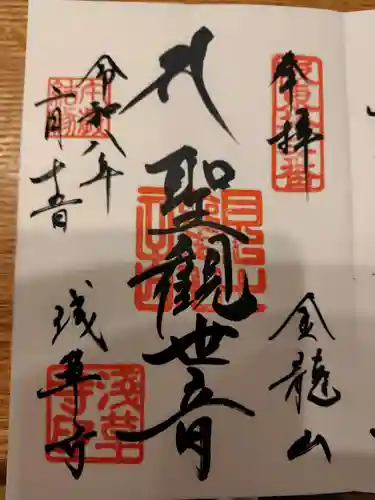 奉拝
金龍山
聖観世音
令和八年
二月十五日
浅草寺
浅草寺印